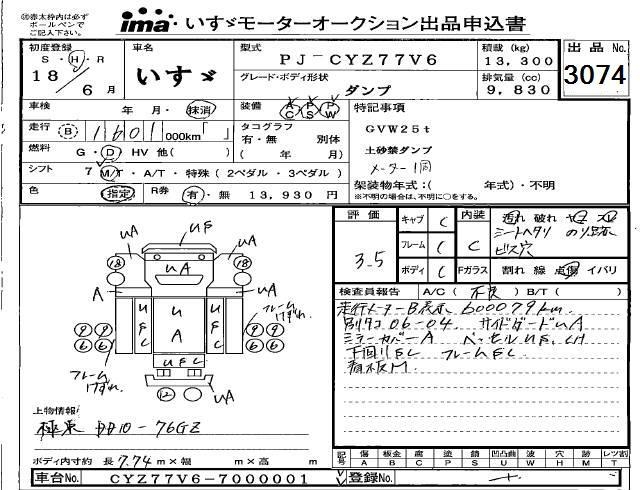 ◎太枠内は必ず
ボールペンで
ご記入下さい。
ima いすゞモーターオークション出品申込書
初度登録
S・H・R
18/6月
車名
いすゞ
型式
PJ-CYZ77V6
グレード・ボディ形状
ダンプ
積載 (kg)
13,300
排気量 (cc)
9,830
出品 No.
3074
車検 年・月・抹消
装備 AC PS PW
特記事項
走行 B 1601 000km「 」
タコグラフ
有・無 別体
( 年 月)
GVW25t
土砂禁ダンプ
メーター1回
燃料 G・D HV 他( )
シフト 7 M/T・A/T・特殊(2ペダル・3ペダル)
架装物年式:( 年式)・不明
※不明の場合は、不明に○をする。
色 指定 R券 有・無 13,930 円
評価
3.5
キャブ C
フレーム C
ボディ C
内装 C
汚れ 破れ ヤニ スレ
シートヘタリ
ビス穴
Fガラス 割れ 線 点傷 イバリ
検査員報告 A/C(不良) B/T( )
走行メーターB表示 600079km
別タコ 06-04 サイドガードUA
ミラーカバーA ベッセルUE, CH
下回りEC フレームEC
看板M
UA
UE
UA
18
UA
18
A
A
UEC
UA
UEC
フレーム
けずれ
9 9
6 6
9 9
6 6
UEC
フレーム
けずれ
UA
12
UA
上物情報
極東 DD10-76GZ
ボディ内寸約 長 7.74 m×幅 m×高 m
記号 傷A 板金B 腐C 塗P 錆S 凹凸曲U 波W 穴H 欠M レツ割T
車台No. CYZ77V6-7000001
登録No.